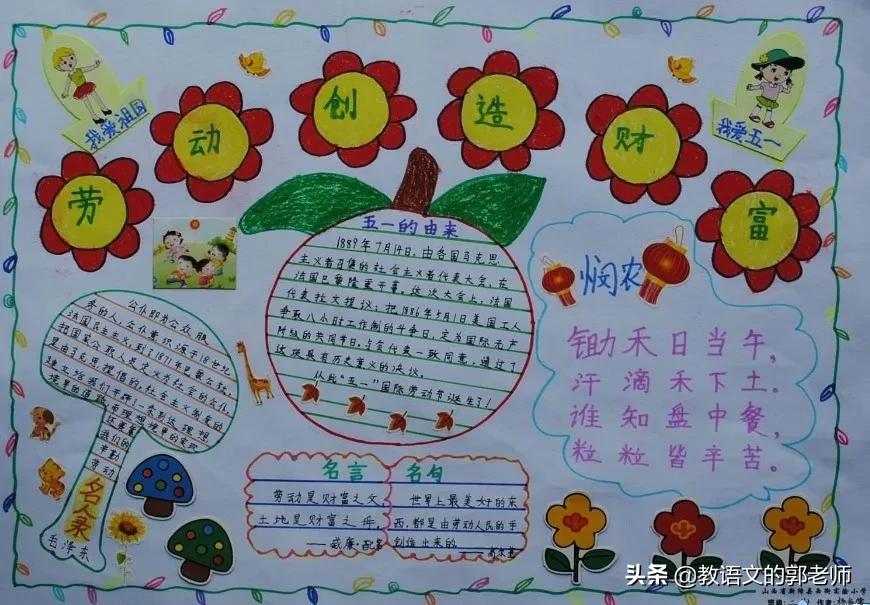 劳动创造财富
我爱祖国
我爱五一
五一的由来
1889年7月14日，由各国马克思
主义者召集的社会主义者代表大会，在
法国巴黎隆重开幕，这次大会上，法国
代表拉文提议：把1886年5月1日美国工人
争取八小时工作制的斗争日，定为国际无产
阶级的共同节日，与会代表一致同意，通过了
这项具有历史意义的决议。
从此“五一”国际劳动节诞生了！
悯农
锄禾日当午，
汗滴禾下土。
谁知盘中餐，
粒粒皆辛苦。
公仆即为公众服
务的人，公仆意识源于18世纪
法国民主主义，到了1871年巴黎公社
名人录
毛泽东
名言
劳动是财富之父，
土地是财富之母。
——威廉·配第
名句
世界上最美好的东
西，都是由劳动人民的手
创造出来的。
头条 @教语文的郭老师